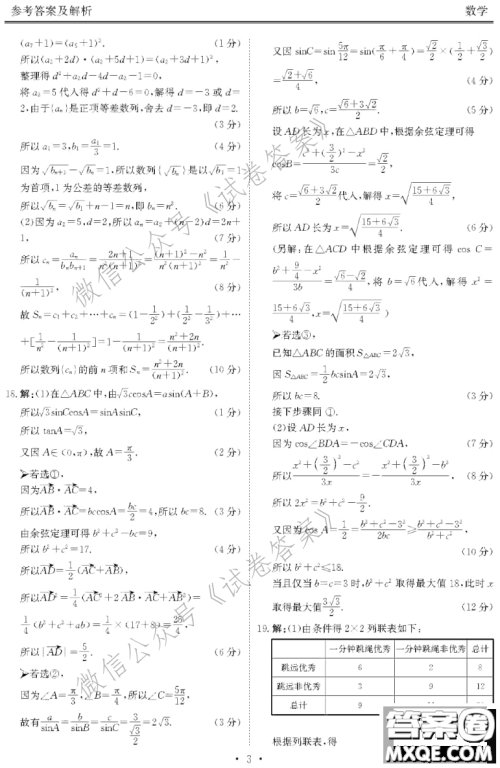 参考答案及解析
数学
(a₂+1)=(a₅+1)².
(1分)
所以(a₂+2d)·(a₂+5d+1)=(a₂+3d+1)²,
整理得d²+a₂d-4d-a₂-1=0,
将a₂=5代入得d²+d-6=0,解得d=-3或d=
2,由于{aₙ}是正项等差数列,舍去d=-3,即d=2.
(3分)
所以a₁=3,b₁=a₁/3=1.
(4分)
因为√bₙ₊₁-√bₙ=1,所以数列{√bₙ}是以√b₁=1
为首项,1为公差的等差数列,
所以√bₙ=√b₁+n-1=n,即bₙ=n².
(6分)
(2)因为a₂=5,d=2,所以aₙ=a₂+(n-2)d=2n+
1,
(7分)
所以cₙ=aₙ/(bₙbₙ₊₁)=(2n+1)/(n²(n+1)²)=((n+1)²-n²)/(n²(n+1)²)=1/n²-
1/(n+1)²,
(8分)
故Sₙ=c₁+c₂+…+cₙ=(1-1/2²)+(1/2²-1/3²)+…
+[1/n²-1/(n+1)²]=1-1/(n+1)²=(n²+2n)/(n+1)².
所以数列{cₙ}的前n项和Sₙ=(n²+2n)/(n+1)².
(10分)
18.解:(1)在△ABC中,由√3ccosA=asin(A+B),
所以√3sinCcosA=sinAsinC,
(1分)
所以tanA=√3,
又因A∈(0,π),故A=π/3.
(2分)
➢若选①,
因为AB·AC=4,
所以AB·AC=bccosA=bc/2=4,所以bc=8.
(3分)
由余弦定理可得b²+c²-bc=9,
所以b²+c²=17.
(4分)
所以AD=1/2(AC+AB),
所以AD²=1/4(AC²+2AB·AC+AB²)=
1/4(b²+c²+ab)=1/4×(17+8)=25/4,
所以|AD|=5/2.
(6分)
➢若选②,
因为∠A=π/3,∠B=π/4,所以∠C=5π/12,
故有a/sinA=b/sinB=c/sinC=3/(√3/2)=2√3.
(3分)
又因sinC=sin5π/12=sin(π/6+π/4)=√2/2×(1/2+√3/2)
=(√2+√6)/4,
(4分)
所以b=√6,c=(√6+3√2)/2.
(5分)
设AD长为x,在△ABD中,根据余弦定理可得
cosB=(c²+(3/2)²-x²)/3c=√2/2,
将c=(√6+3√2)/2代入,解得x=√((15+6√3)/4),
所以AD长为x=√((15+6√3)/4).
(6分)
(另解:在△ACD中根据余弦定理可得cosC=
(b²+9/4-x²)/3b=(√6-√2)/4,将b=√6代入,解得x²=
(15+6√3)/4,x=√((15+6√3)/4))
➢若选③,
已知△ABC的面积S△ABC=2√3,
因S△ABC=1/2bcsinA=2√3,
所以bc=8.
(3分)
接下步骤同①.
(2)设AD长为x,
因为cos∠BDA=-cos∠CDA,
(7分)
所以(x²+(3/2)²-c²)/3x=-(x²+(3/2)²-b²)/3x,
(8分)
所以2x²=b²+c²-9/2.
又因为cosA=1/2=(b²+c²-3²)/2bc≥(b²+c²-3²)/(b²+c²),
(10分)
所以b²+c²≤18.
当且仅当b=c=3时,b²+c²取得最大值18,此时x
取得最大值3√3/2.
(12分)
19.解:(1)由条件得2×2列联表如下:
一分钟跳绳优秀 一分钟跳绳非优秀 总计
跳远优秀 6 2 8
跳远非优秀 3 9 12
总计 9
根据列联表,得
· 3 ·
微信公众号《试卷答案》
微信公众号《试卷答案》
答案圈
MXQE.COM